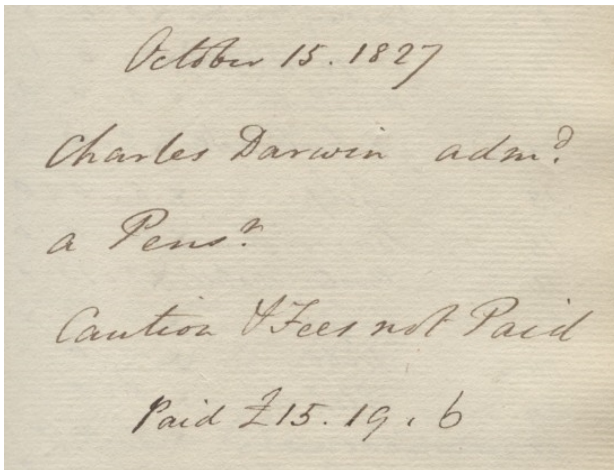 October 15. 1827
Charles Darwin admᵈ.
a Pensʳ.
Caution & Fees not Paid
Paid £15. 19. 6